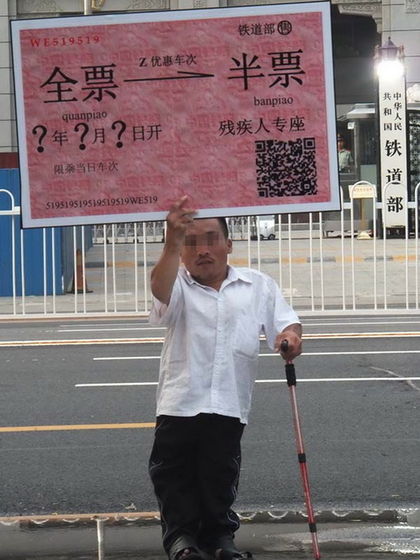 WE519519
铁道部 (售)
全票 Z 优惠车次 半票
quanpiao banpiao
?年?月?日开 残疾人专座
限乘当日车次
5195195195195195519WE519
中华人民
共和国
铁道部